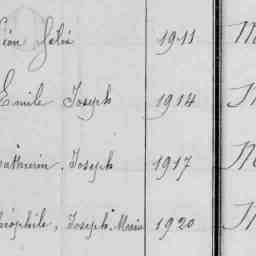 Léon Félix 1911 M
Emile Joseph 1914
Mathurin, Joseph 1917 M
Théophile, Joseph Marie 1920